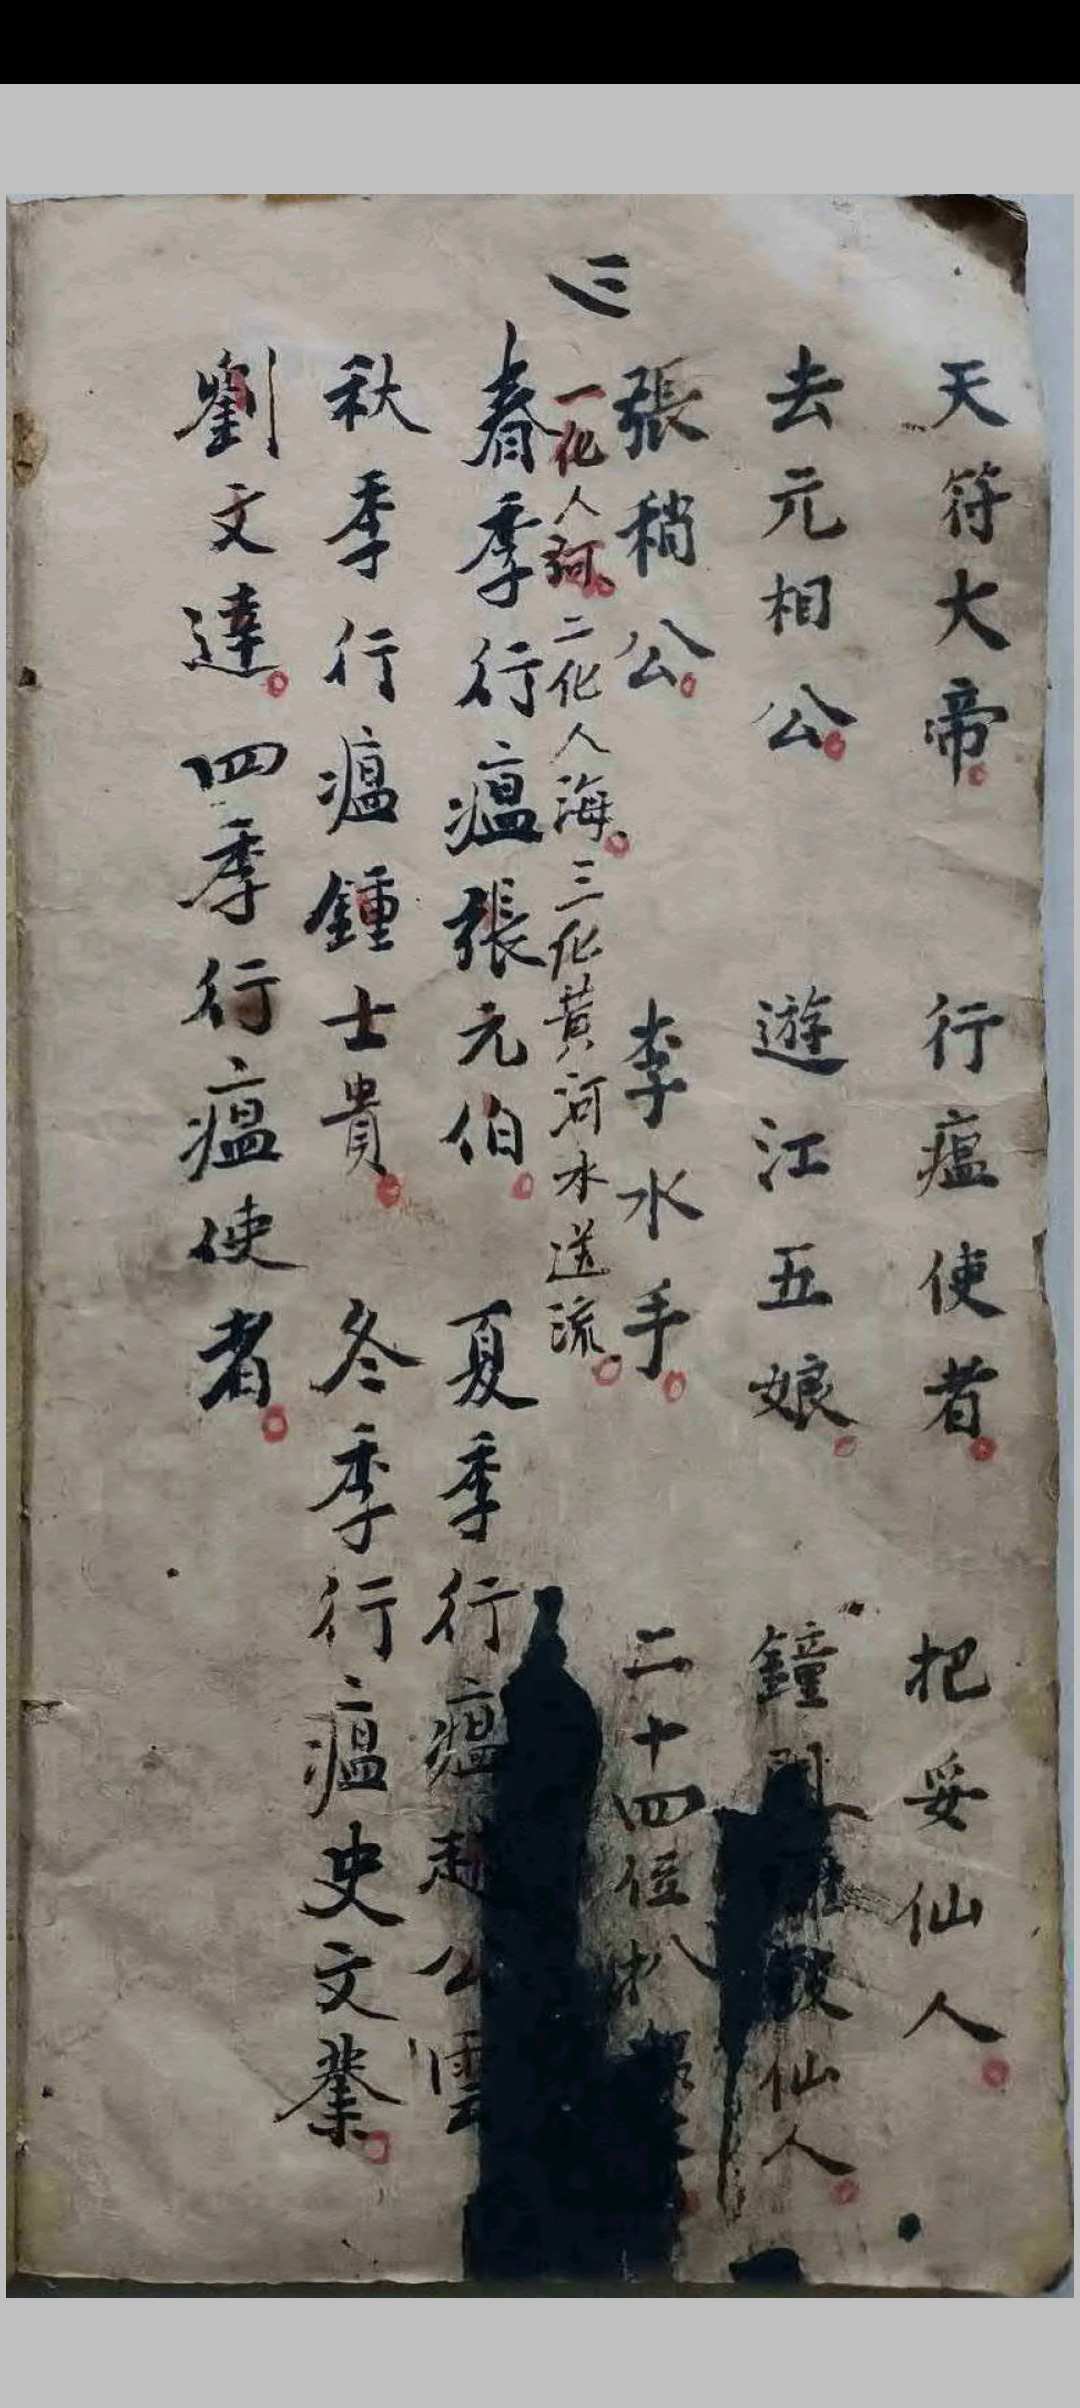 天符大帝 行瘟使者 把妥仙人
去元相公 遊江五娘 鐘 仙人
張稍公 李水手 二十四位
三
一化人河 二化人海 三化黃河水送流
春季行瘟張元伯 夏季行瘟趙公雲
秋季行瘟鍾士貴 冬季行瘟史文業
劉文達 四季行瘟使者